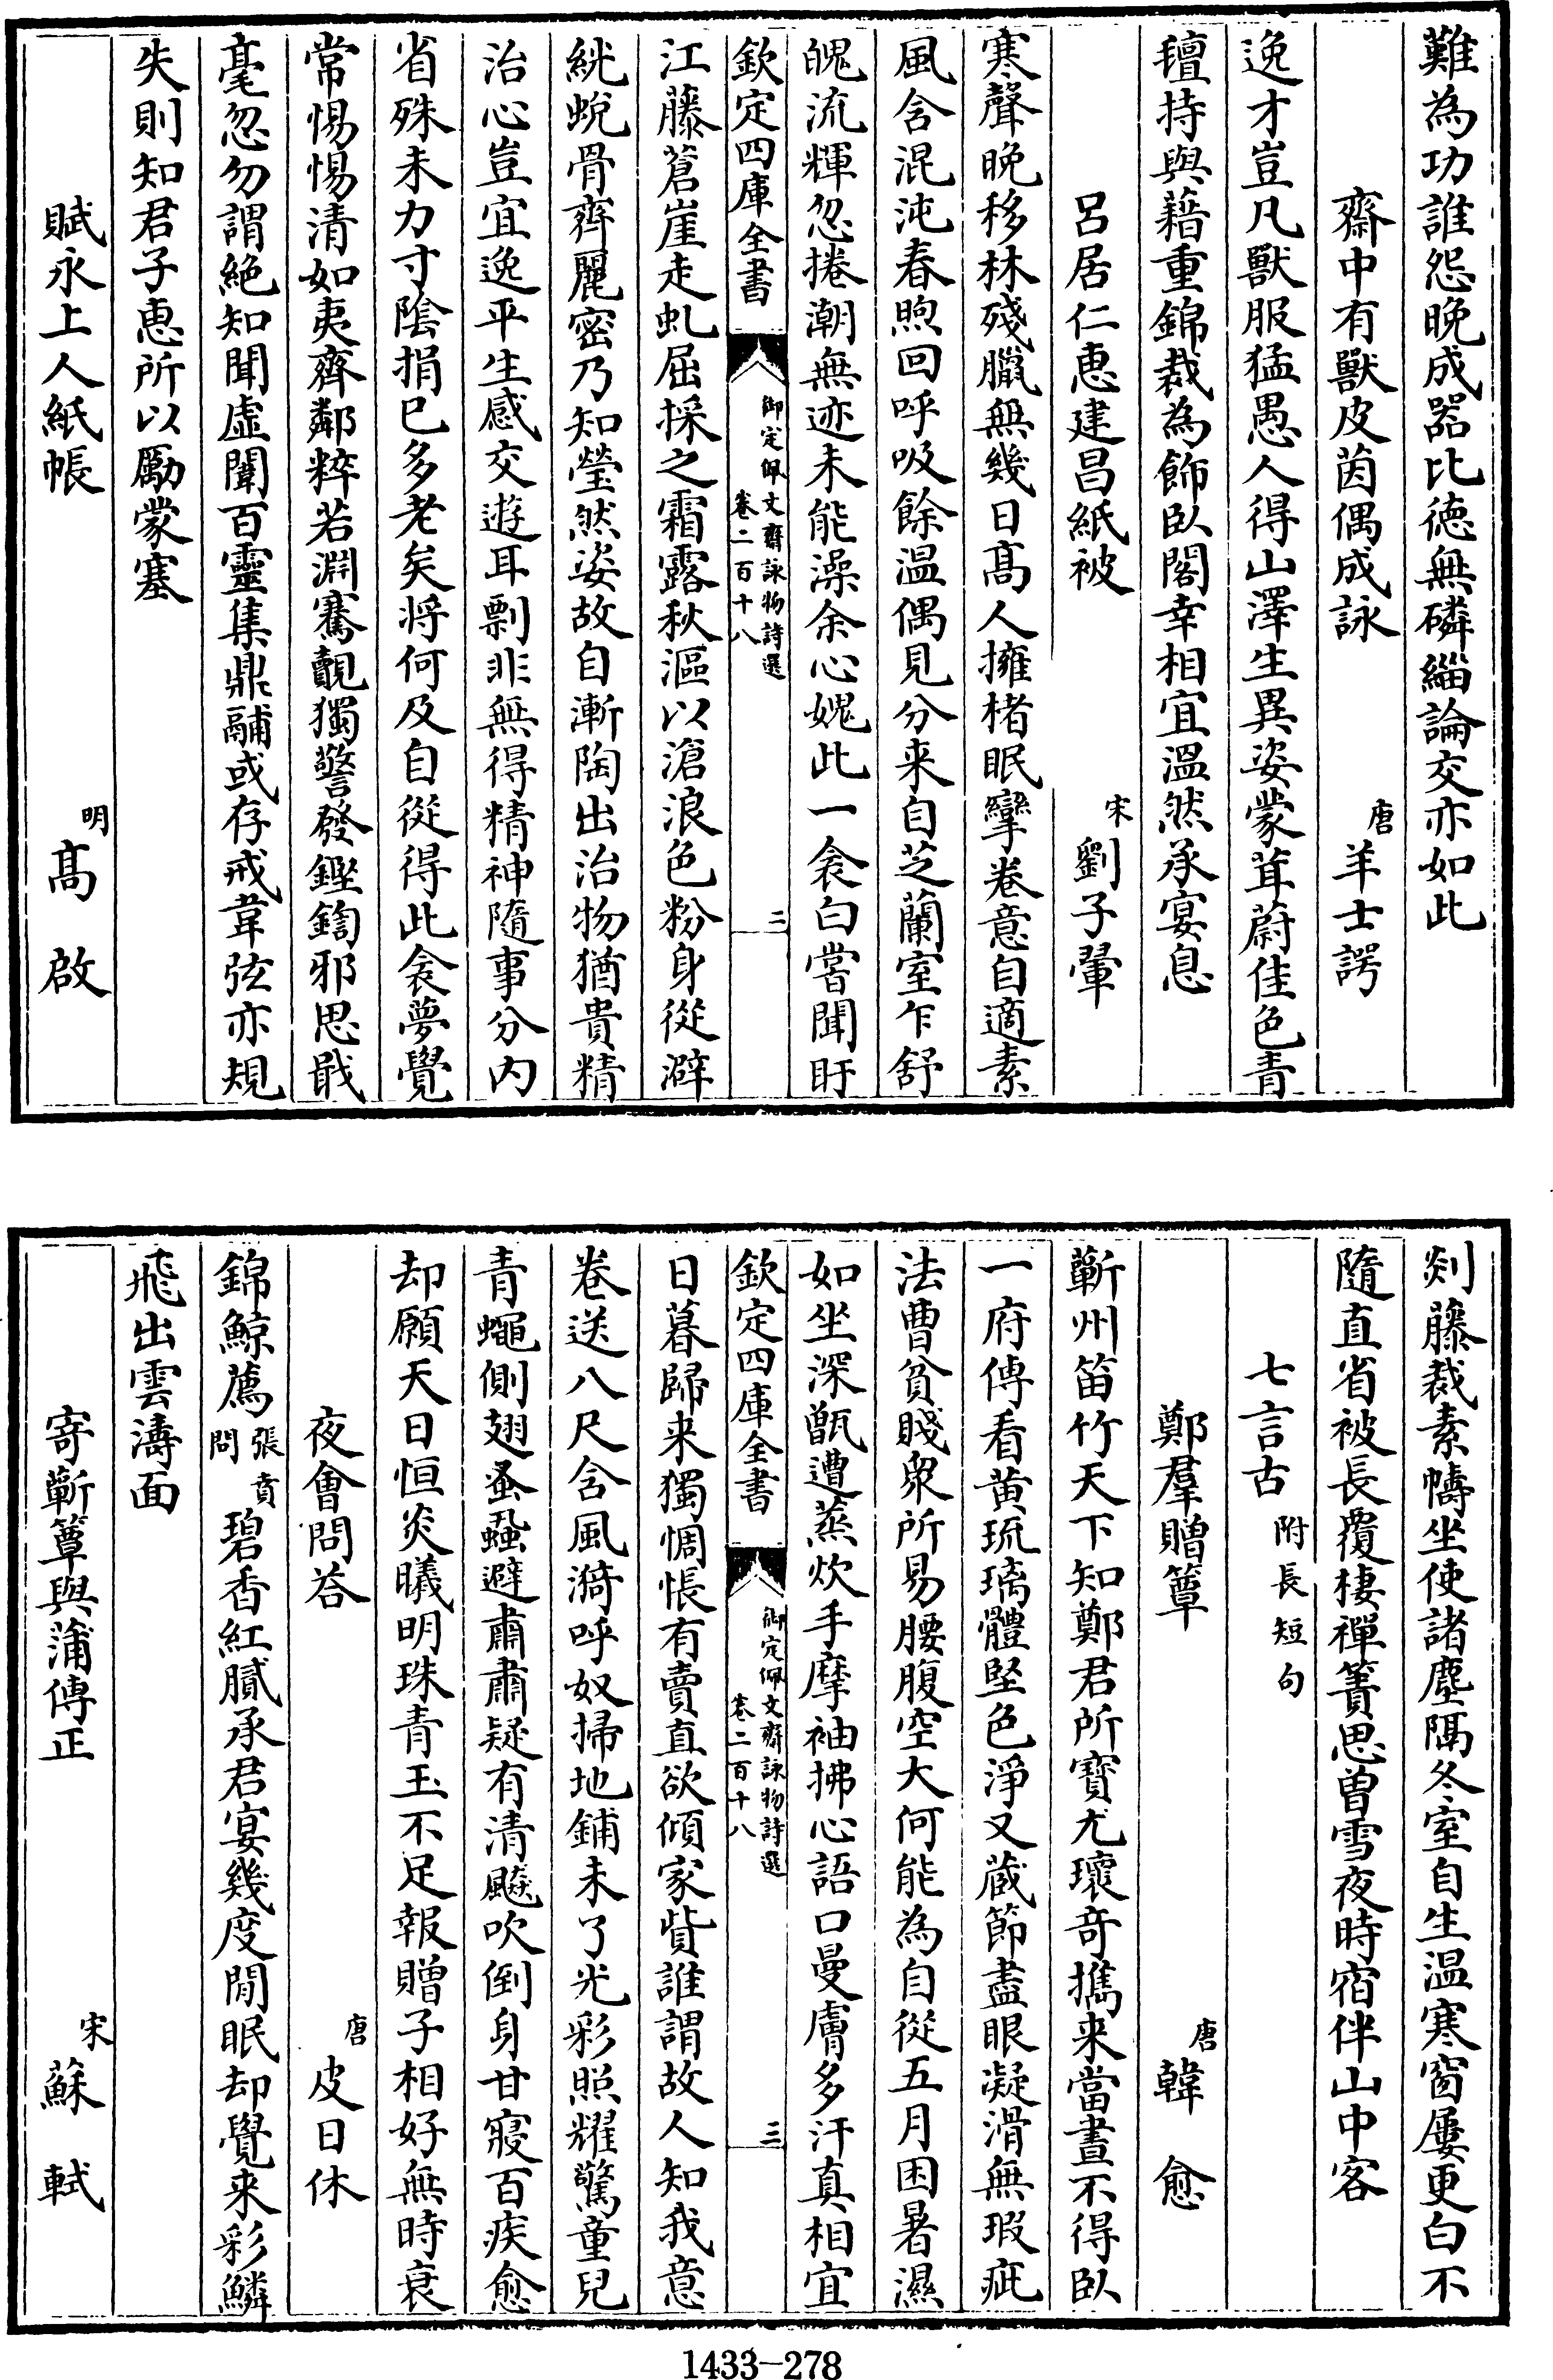 難為功誰怨晚成器比徳無磷緇論交亦如此
齋中有獸皮茵偶成詠 唐 羊士諤
逸才豈凡獸服猛愚人得山澤生異姿蒙茸蔚佳色青
氊持與藉重錦裁為飾臥閣幸相宜温然承宴息
呂居仁惠建昌紙被 宋 劉子翬
寒聲晚移林殘臘無幾日髙人擁楮眠攣卷意自適素
風含混沌春煦回呼吸餘温偶見分来自芝蘭室乍舒
魄流輝忽捲潮無迹未能澡余心媿此一衾白嘗聞盱
欽定四庫全書 御定佩文齋詠物詩選 卷二百十八 二
江藤蒼崖走虬屈採之霜露秋漚以滄浪色粉身從澼
絖蛻骨齊麗密乃知瑩然姿故自漸陶出治物猶貴精
治心豈宜逸平生感交遊耳剽非無得精神隨事分内
省殊未力寸陰捐已多老矣将何及自從得此衾夢覺
常惕惕清如夷齊鄰粹若淵騫覿獨警發鏗鍧邪思戢
毫忽勿謂絶知聞虚闈百靈集鼎鬴或存戒韋弦亦規
失則知君子惠所以勵蒙塞
賦永上人紙帳 明 髙啟
剡藤裁素幬坐使諸塵隔冬室自生温寒窗屢更白不
隨直省被長覆棲禪簀思曽雪夜時宿伴山中客
七言古 附長短句
鄭羣贈簟 唐 韓愈
蘄州笛竹天下知鄭君所寶尤瓌奇擕来當晝不得臥
一府傳看黄琉璃體堅色淨又蔵節盡眼凝滑無瑕疵
法曹貧賤衆所易腰腹空大何能為自從五月困暑濕
如坐深甑遭蒸炊手摩袖拂心語口曼膚多汗真相宜
欽定四庫全書 御定佩文齋詠物詩選 卷二百十八 三
日暮歸来獨惆悵有賣直欲傾家貲誰謂故人知我意
卷送八尺含風漪呼奴掃地鋪未了光彩照耀驚童兒
青蠅側翅蚤蝨避肅肅疑有清飈吹倒身甘寢百疾愈
却願天日恒炎曦明珠青玉不足報贈子相好無時衰
夜會問荅 唐 皮日休
錦鯨薦 張賁問 碧香紅膩承君宴幾度閒眠却覺来彩鱗
飛出雲濤面
寄蘄簟與蒲傳正 宋 蘇軾
1433—278